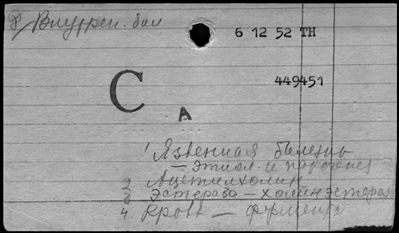 8) Внутрен. бол
6 12 52 TH
449451
C A
1 Язвенная болезнь
— этиол. и патогенез
2 Ацетилхолин
3 Эстераза — холинэстераза
4 Кровь — ферменты